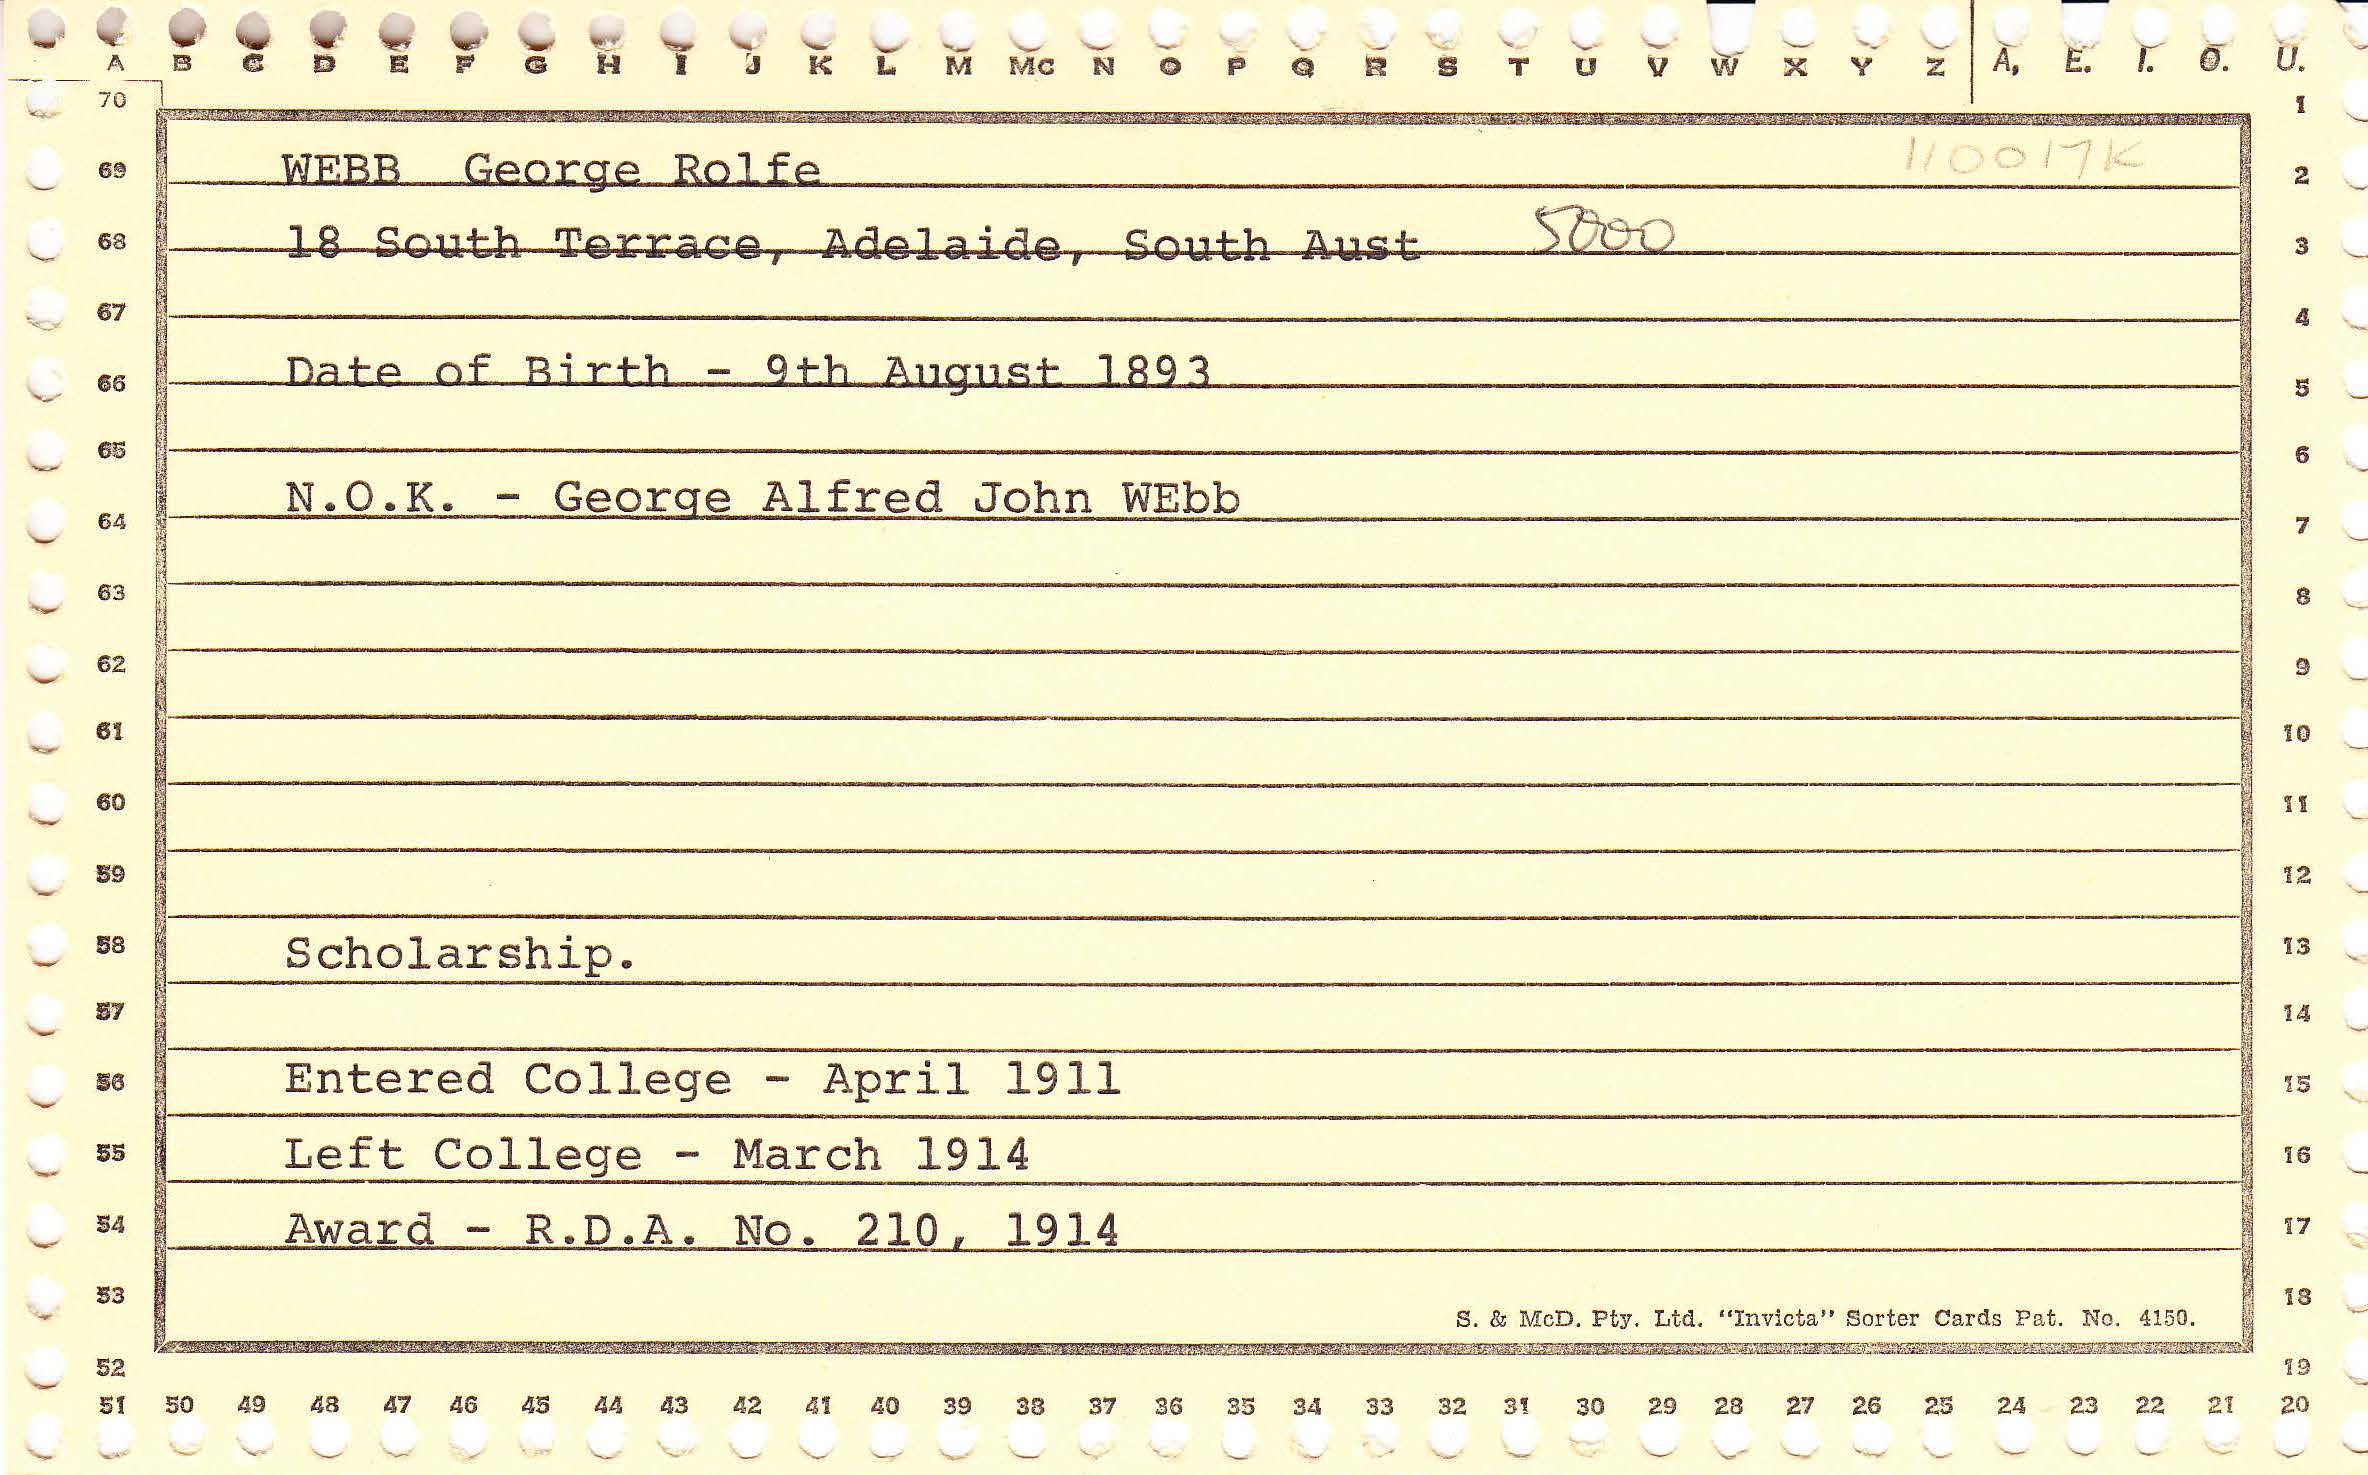 A B C D E F G H I J K L M Mc N O P Q R S T U V W X Y Z A, E. I. O. U.
70 1
69 WEBB George Rolfe 110017K 2
68 18 South Terrace, Adelaide, South Aust 5000 3
67 4
66 Date of Birth - 9th August 1893 5
65 6
64 N.O.K. - George Alfred John WEbb 7
63 8
62 9
61 10
60 11
59 12
58 Scholarship. 13
57 14
56 Entered College - April 1911 15
55 Left College - March 1914 16
54 Award - R.D.A. No. 210, 1914 17
53 18
S. & McD. Pty. Ltd. "Invicta" Sorter Cards Pat. No. 4150.
52 19
51 50 49 48 47 46 45 44 43 42 41 40 39 38 37 36 35 34 33 32 31 30 29 28 27 26 25 24 23 22 21 20